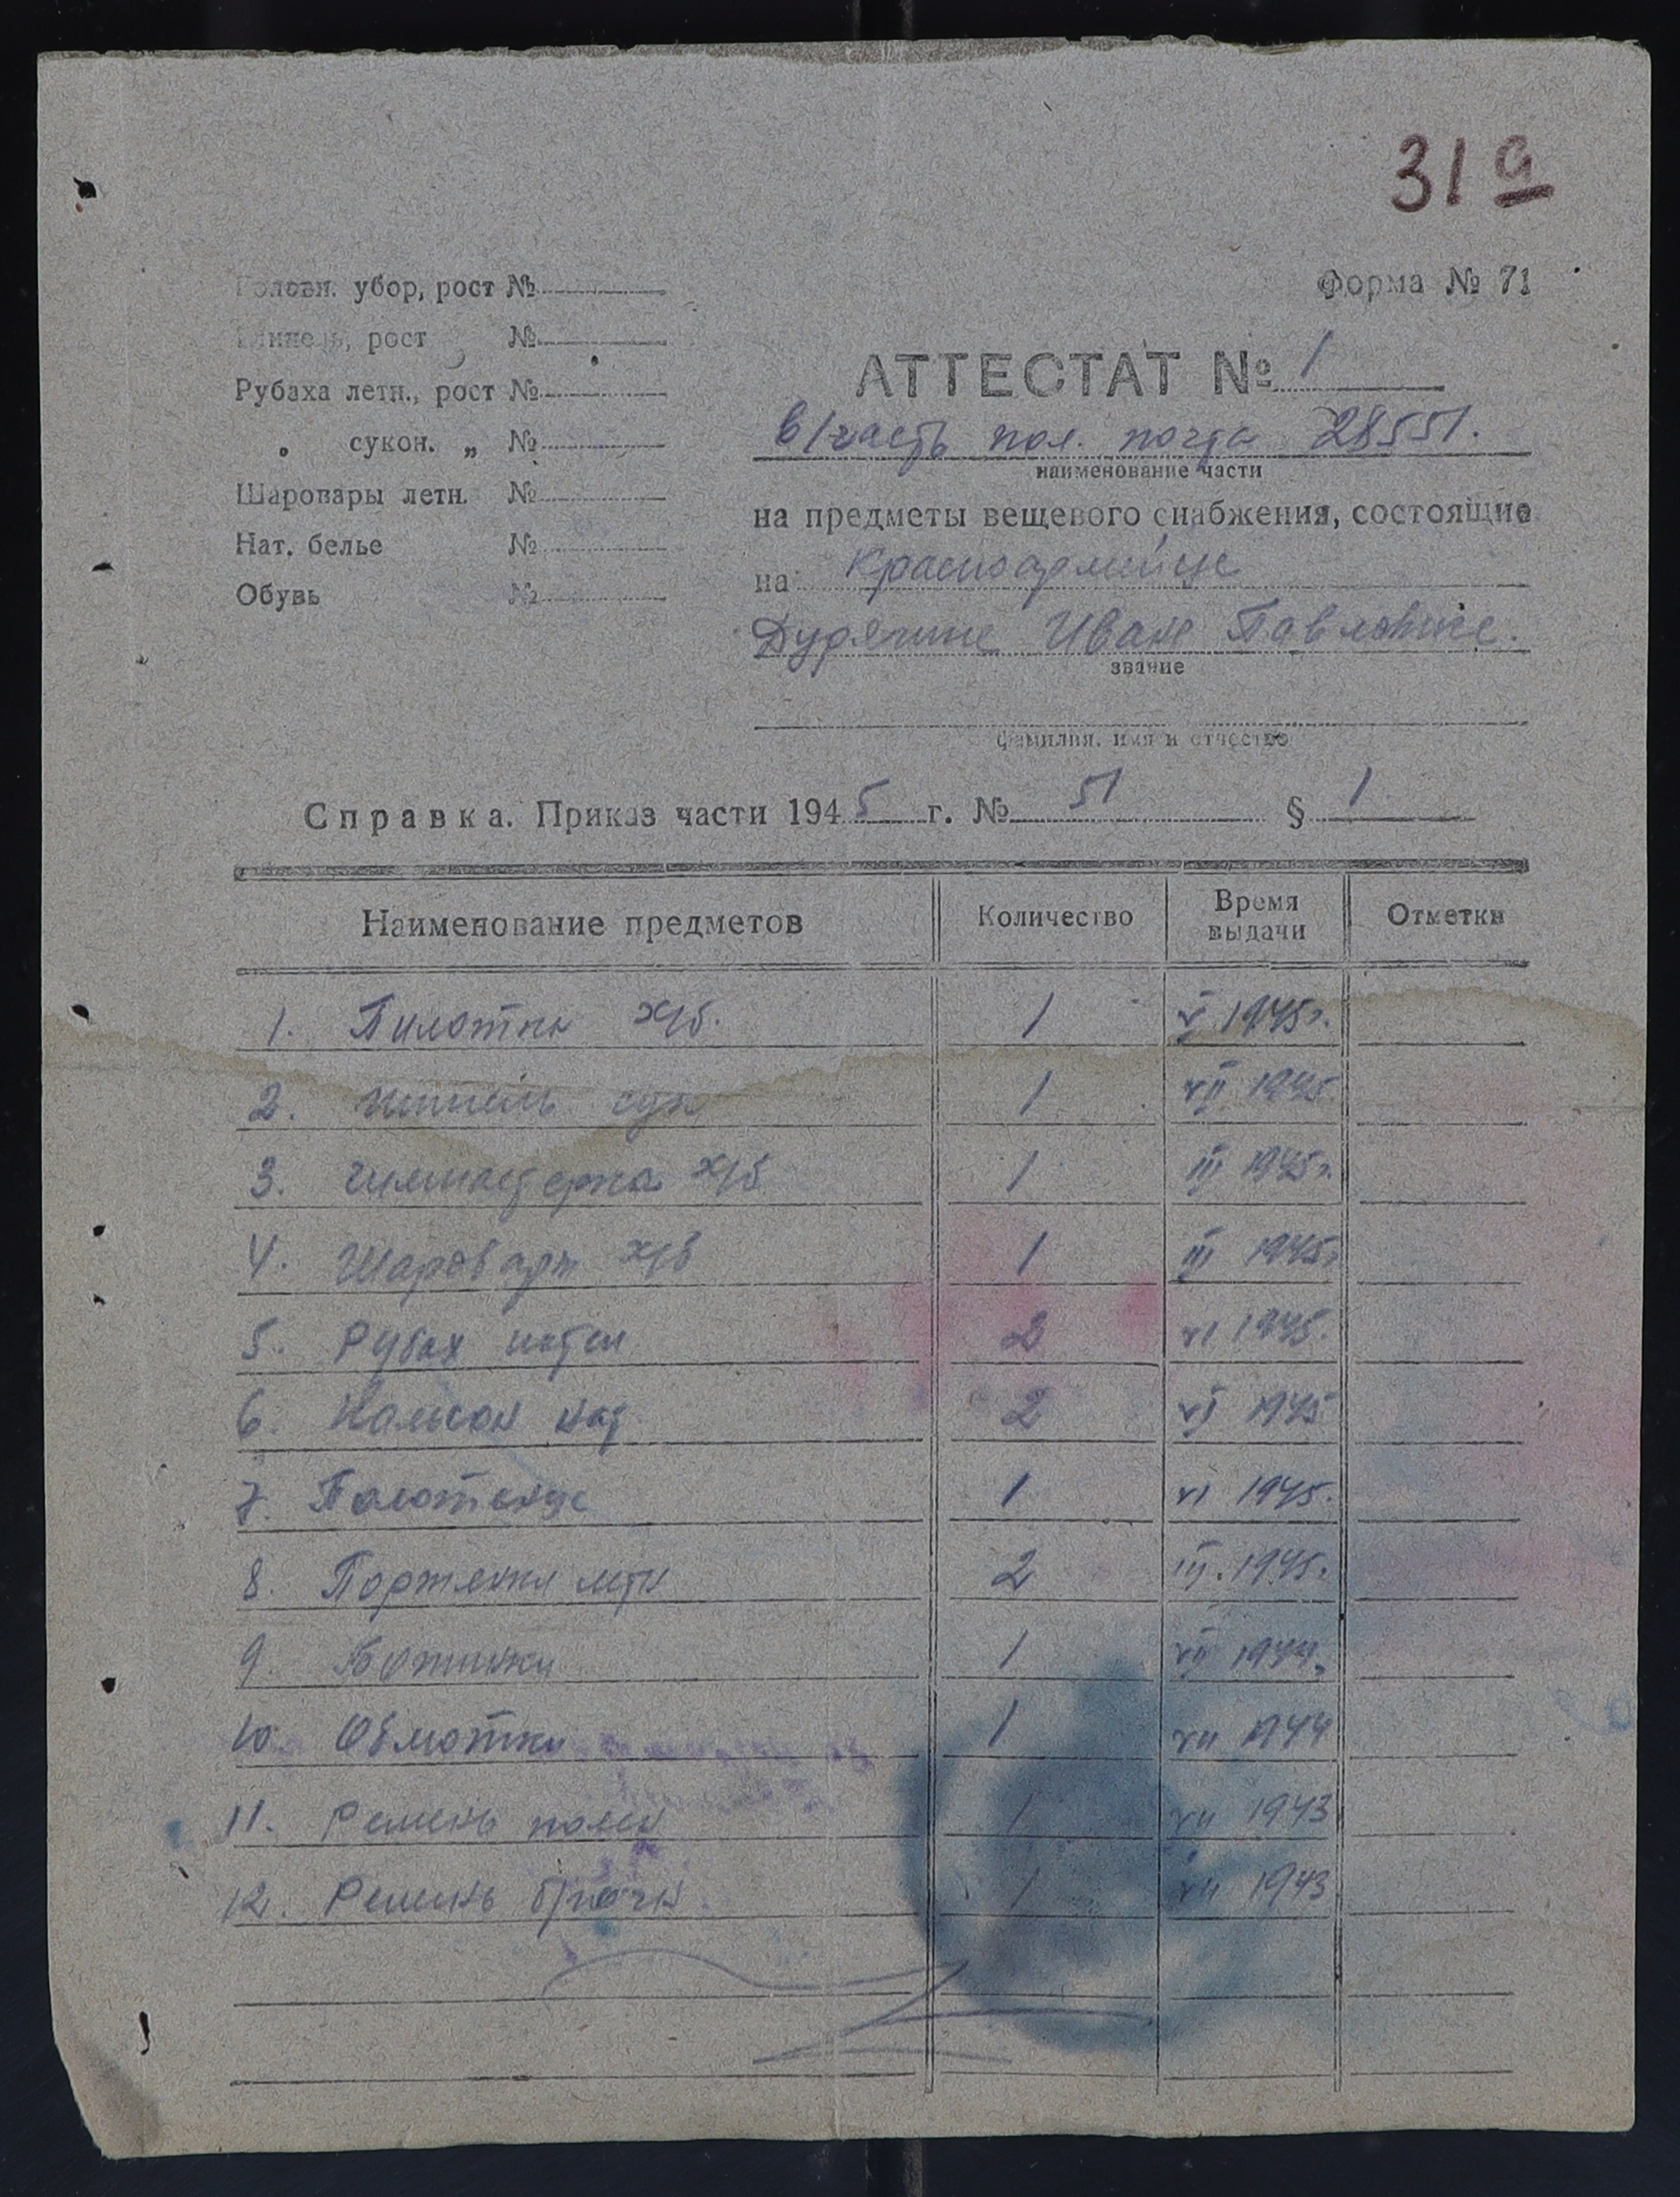 31 а
Головн. убор, рост №
Форма № 71
Шинель, рост №
АТТЕСТАТ № 1
Рубаха летн., рост №
в/часть пол. почта 28551.
„ сукон. „ №
наименование части
Шаровары летн. №
на предметы вещевого снабжения, состоящие
Нат. белье №
на Красноармейце
Обувь №
Иване Павловиче.
звание
фамилия, имя и отчество
Справка. Приказ части 1945 г. № 51 § 1
Наименование предметов Количество Время выдачи Отметки
1. Пилотка х/б. 1 V 1945г.
2. Шинель сук 1 VII 1945
3. Гимнастерка х/б 1 III 1945г.
4. Шаровары х/б 1 III 1945г
5. Рубах нател 2 VI 1945.
6. Кальсон нат. 2 VI 1945
7. Полотенце 1 VI 1945.
8. Портянки летн 2 III. 1945.
9. Ботинки 1 VII 1944.
10. Обмотки 1 VII 1944
11. Ремень поясн 1 VII 1943
12. Ремень брючн. 1 VII 1943